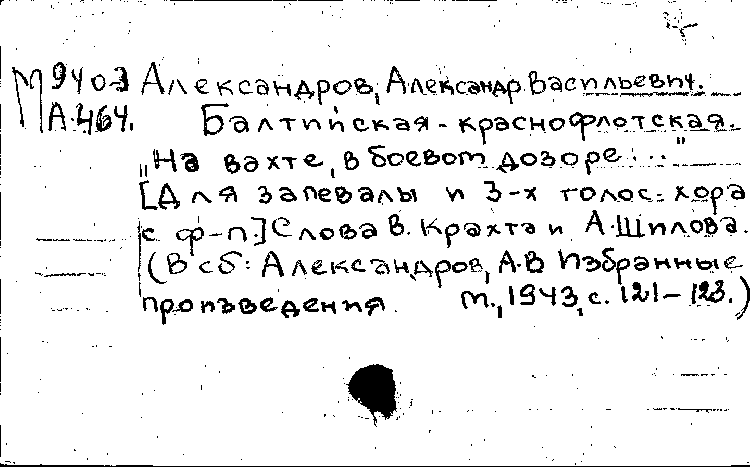 М9403 Александров, Александр Васильевич.
А.464. Балтийская-краснофлотская.
"На вахте, в боевом дозоре..."
[Для запевалы и 3-х голос. хора
с ф-п] Слова В. Крахта и А. Шилова.
(В сб: Александров, А.В Избранные
произведения. М., 1943, с. 121-123.)